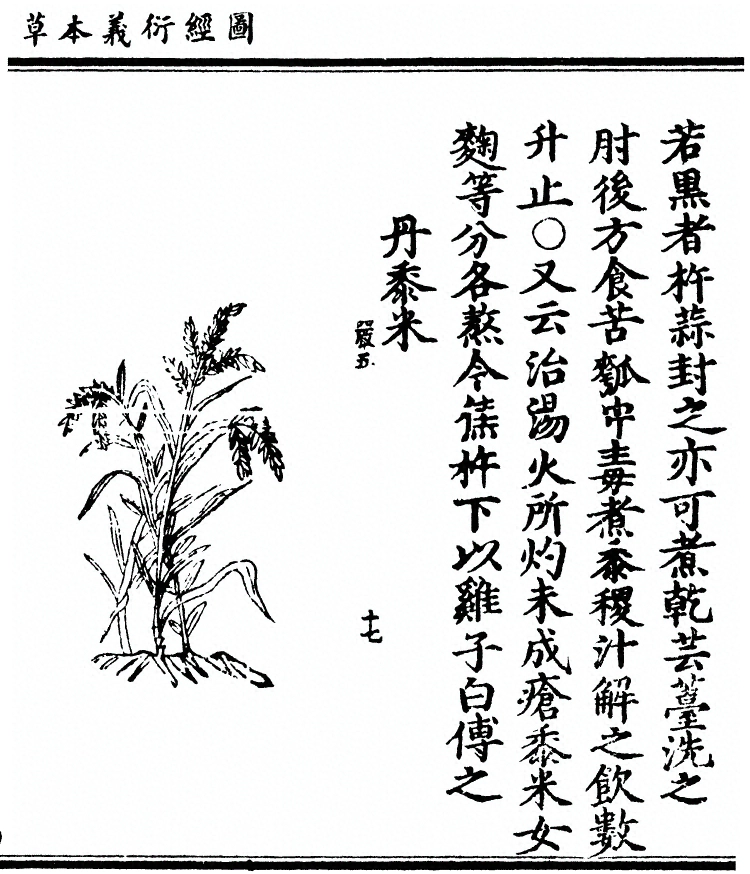 圖經衍義本草
若黒者杵蒜封之亦可煮乾芸薹洗之
肘後方食苦瓠中毒煮黍穰汁解之飲數
升止○又云治湯火所灼未成瘡黍米女
麴等分各熬令𤈛杵下以雞子白傅之
丹黍米
十七